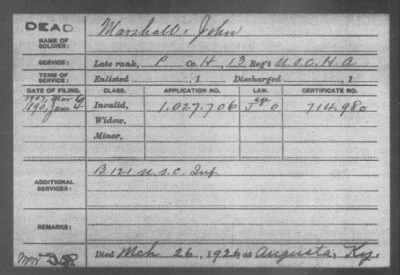 DEAD
NAME OF SOLDIER: Marshall, John
SERVICE: Late rank, P Co. H, 13 Reg't U.S.C.H.A
TERM OF SERVICE: Enlisted , 1 Discharged , 1
DATE OF FILING. CLASS. APPLICATION NO. LAW. CERTIFICATE NO.
1907, Mar 6 Age
1890, June 4 Invalid, 1.027.706 J O 714.980
Widow,
Minor,
ADDITIONAL SERVICES: B 121 U.S.C. Inf
REMARKS:
Died Mch 26, 1926 at Augusta, Ky.